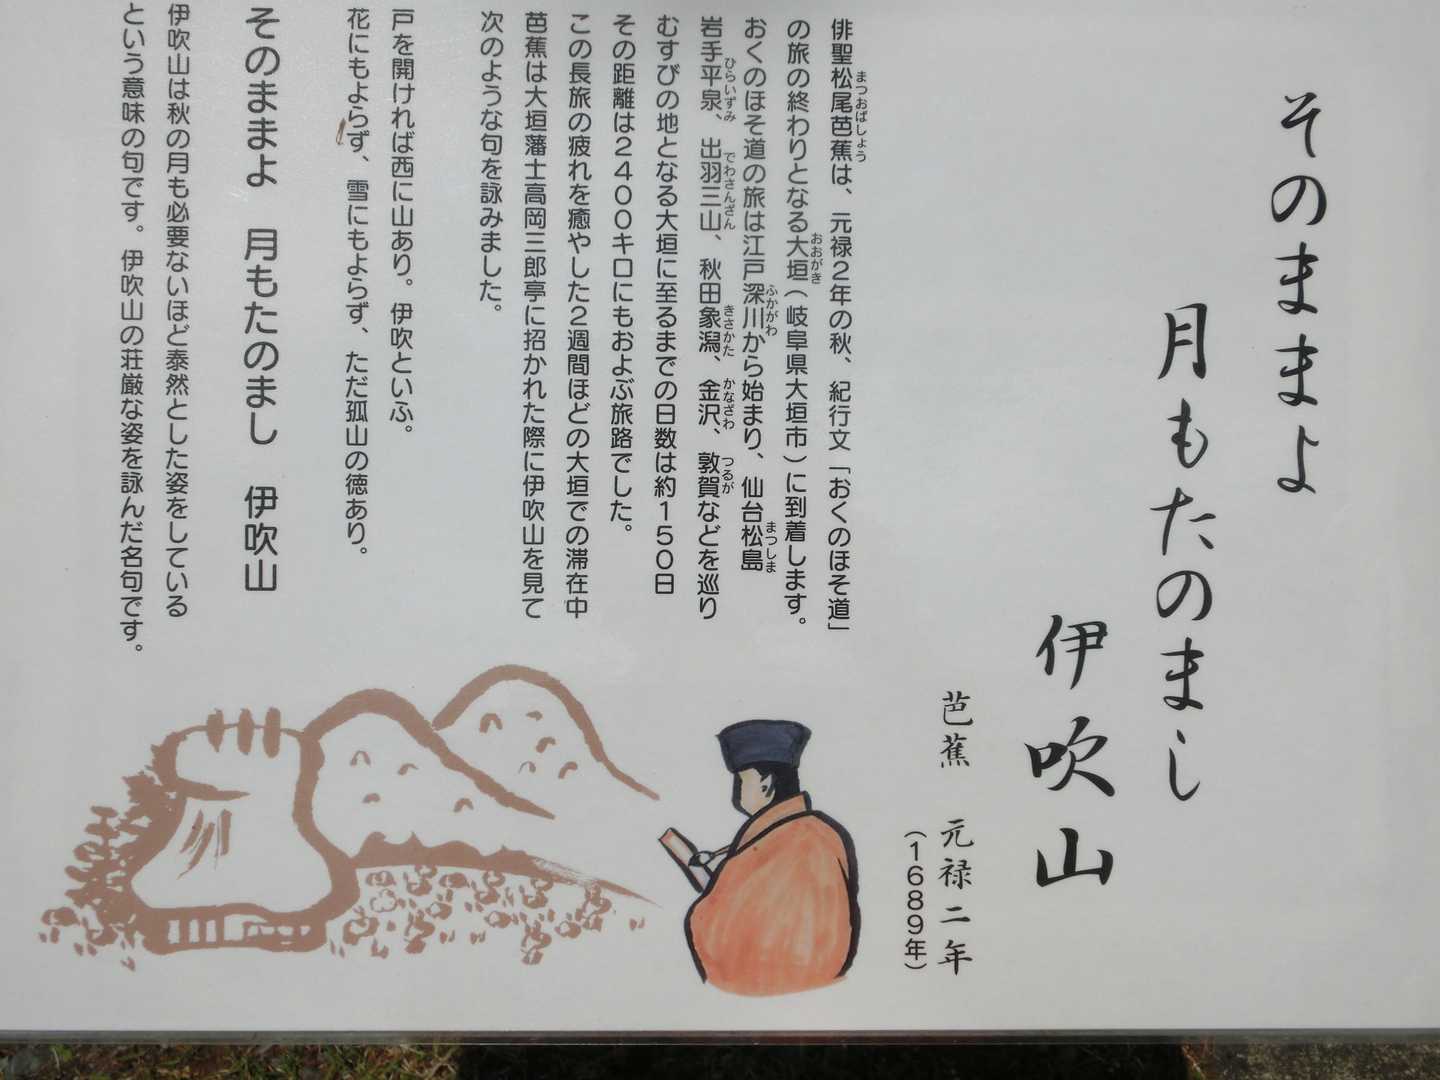 そのままよ
月もたのまし
伊吹山
芭蕉 元禄二年
(1689年)
俳聖松尾芭蕉は、元禄2年の秋、紀行文「おくのほそ道」
の旅の終わりとなる大垣(岐阜県大垣市)に到着します。
おくのほそ道の旅は江戸深川から始まり、仙台松島
岩手平泉、出羽三山、秋田象潟、金沢、敦賀などを巡り
むすびの地となる大垣に至るまでの日数は約150日
その距離は2400キロにもおよぶ旅路でした。
この長旅の疲れを癒やした2週間ほどの大垣での滞在中
芭蕉は大垣藩士高岡三郎亭に招かれた際に伊吹山を見て
次のような句を詠みました。
戸を開ければ西に山あり。伊吹といふ。
花にもよらず、雪にもよらず、ただ孤山の徳あり。
そのままよ 月もたのまし 伊吹山
伊吹山は秋の月も必要ないほど泰然とした姿をしている
という意味の句です。伊吹山の荘厳な姿を詠んだ名句です。